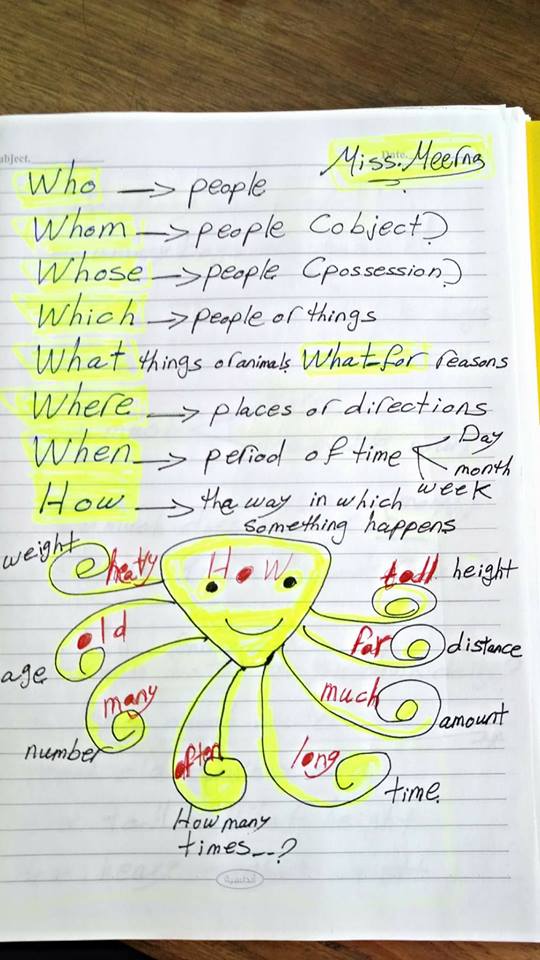 ubject.
Date.
Miss. Meerna
Who → people
Whom → people (object)
Whose → people (possession)
Which → people or things
What things or animals What for reasons
Where → places or directions
When → period of time Day
month
week
How → the way in which
something happens
How
weight heavy
old
age
many
number
often
How many
times--?
tall height
far distance
much
amount
long
time.